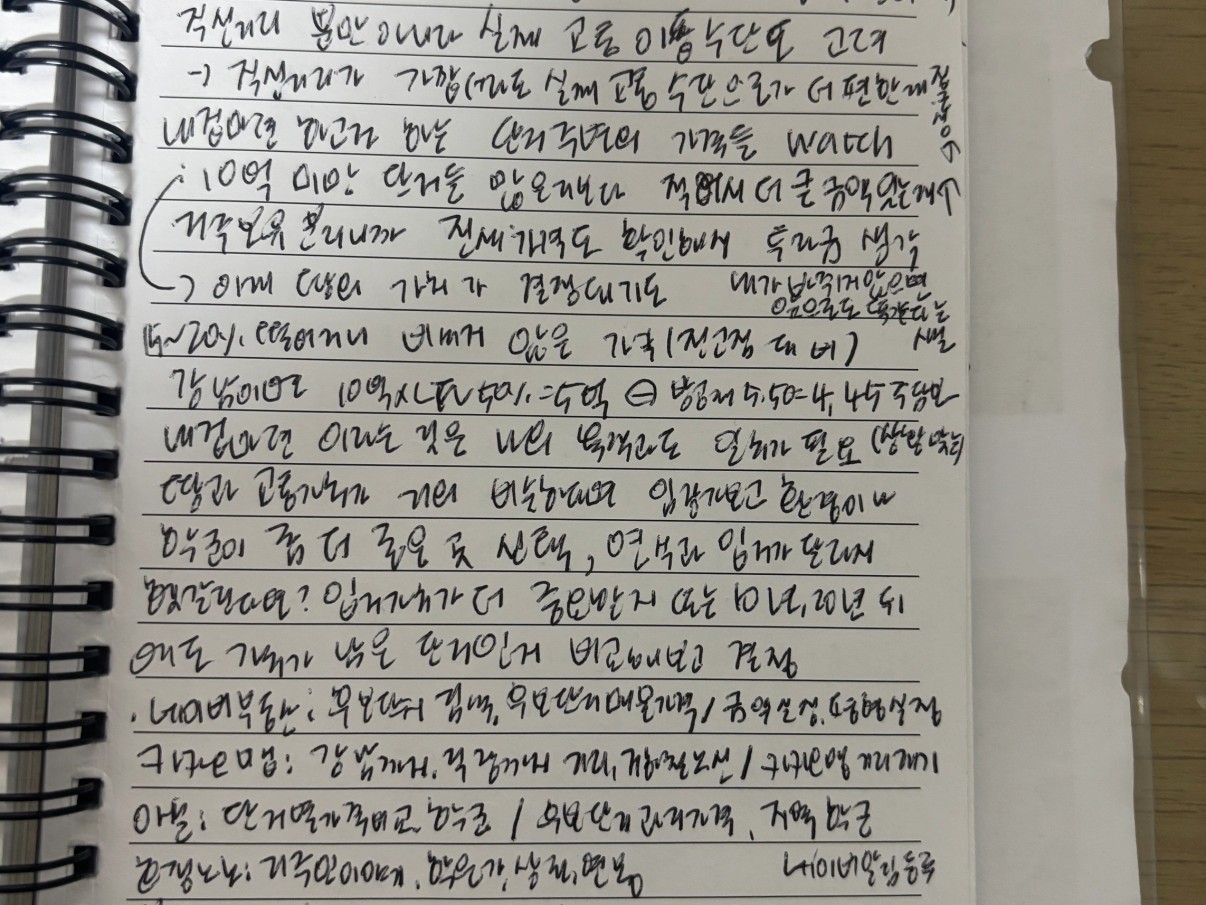 직선거리 뿐만 아니라 실제 교통 이동수단도 고려
→ 직선거리가 가깝더라도 실제 교통 수단으로가 더 편한게
내집마련 하고자 하는 단지주변의 가격들 watch
: 10억 미만 단지들 많은지보다 적어서 더 큰 금액있는게↑
거주보유 분리니까 전세가격도 확인해서 투자금 생각
→ 아래 땅의 가치가 결정되기도 내가 바뀌지않으면
앞으로도 똑같다는
15~20% 떨어지니 비싸지 않은 가격(전고점 대비) 시별
강남이므로 10억xLTV 50% = 5억 ⊖ 방공제 5,500=4.45 주담보
내집마련 이라는 것은 나의 목적과도 일치가 필요
땅과 교통가치가 거의 비슷하다면 임장가보고 환경이나
학군이 좀 더 좋은 곳 선택, 연식과 입지가 달라서
헷갈린다면? 입지가치가 더 중요한지 또는 10년, 20년 뒤
에도 가치가 남은 단지인지 비교해보고 결정
· 네이버부동산: 후보단지 검색, 후보단지매물가격/금액설정, 평형설정
카카오맵: 강남까지, 직장까지 거리, 지하철노선 / 카카오맵 거리재기
아실: 단지별가격비교, 학군 / 후보단지 과거가격, 지역 학군
호갱노노: 거주민이야기, 학원가, 상권, 연봉 네이버알림등록